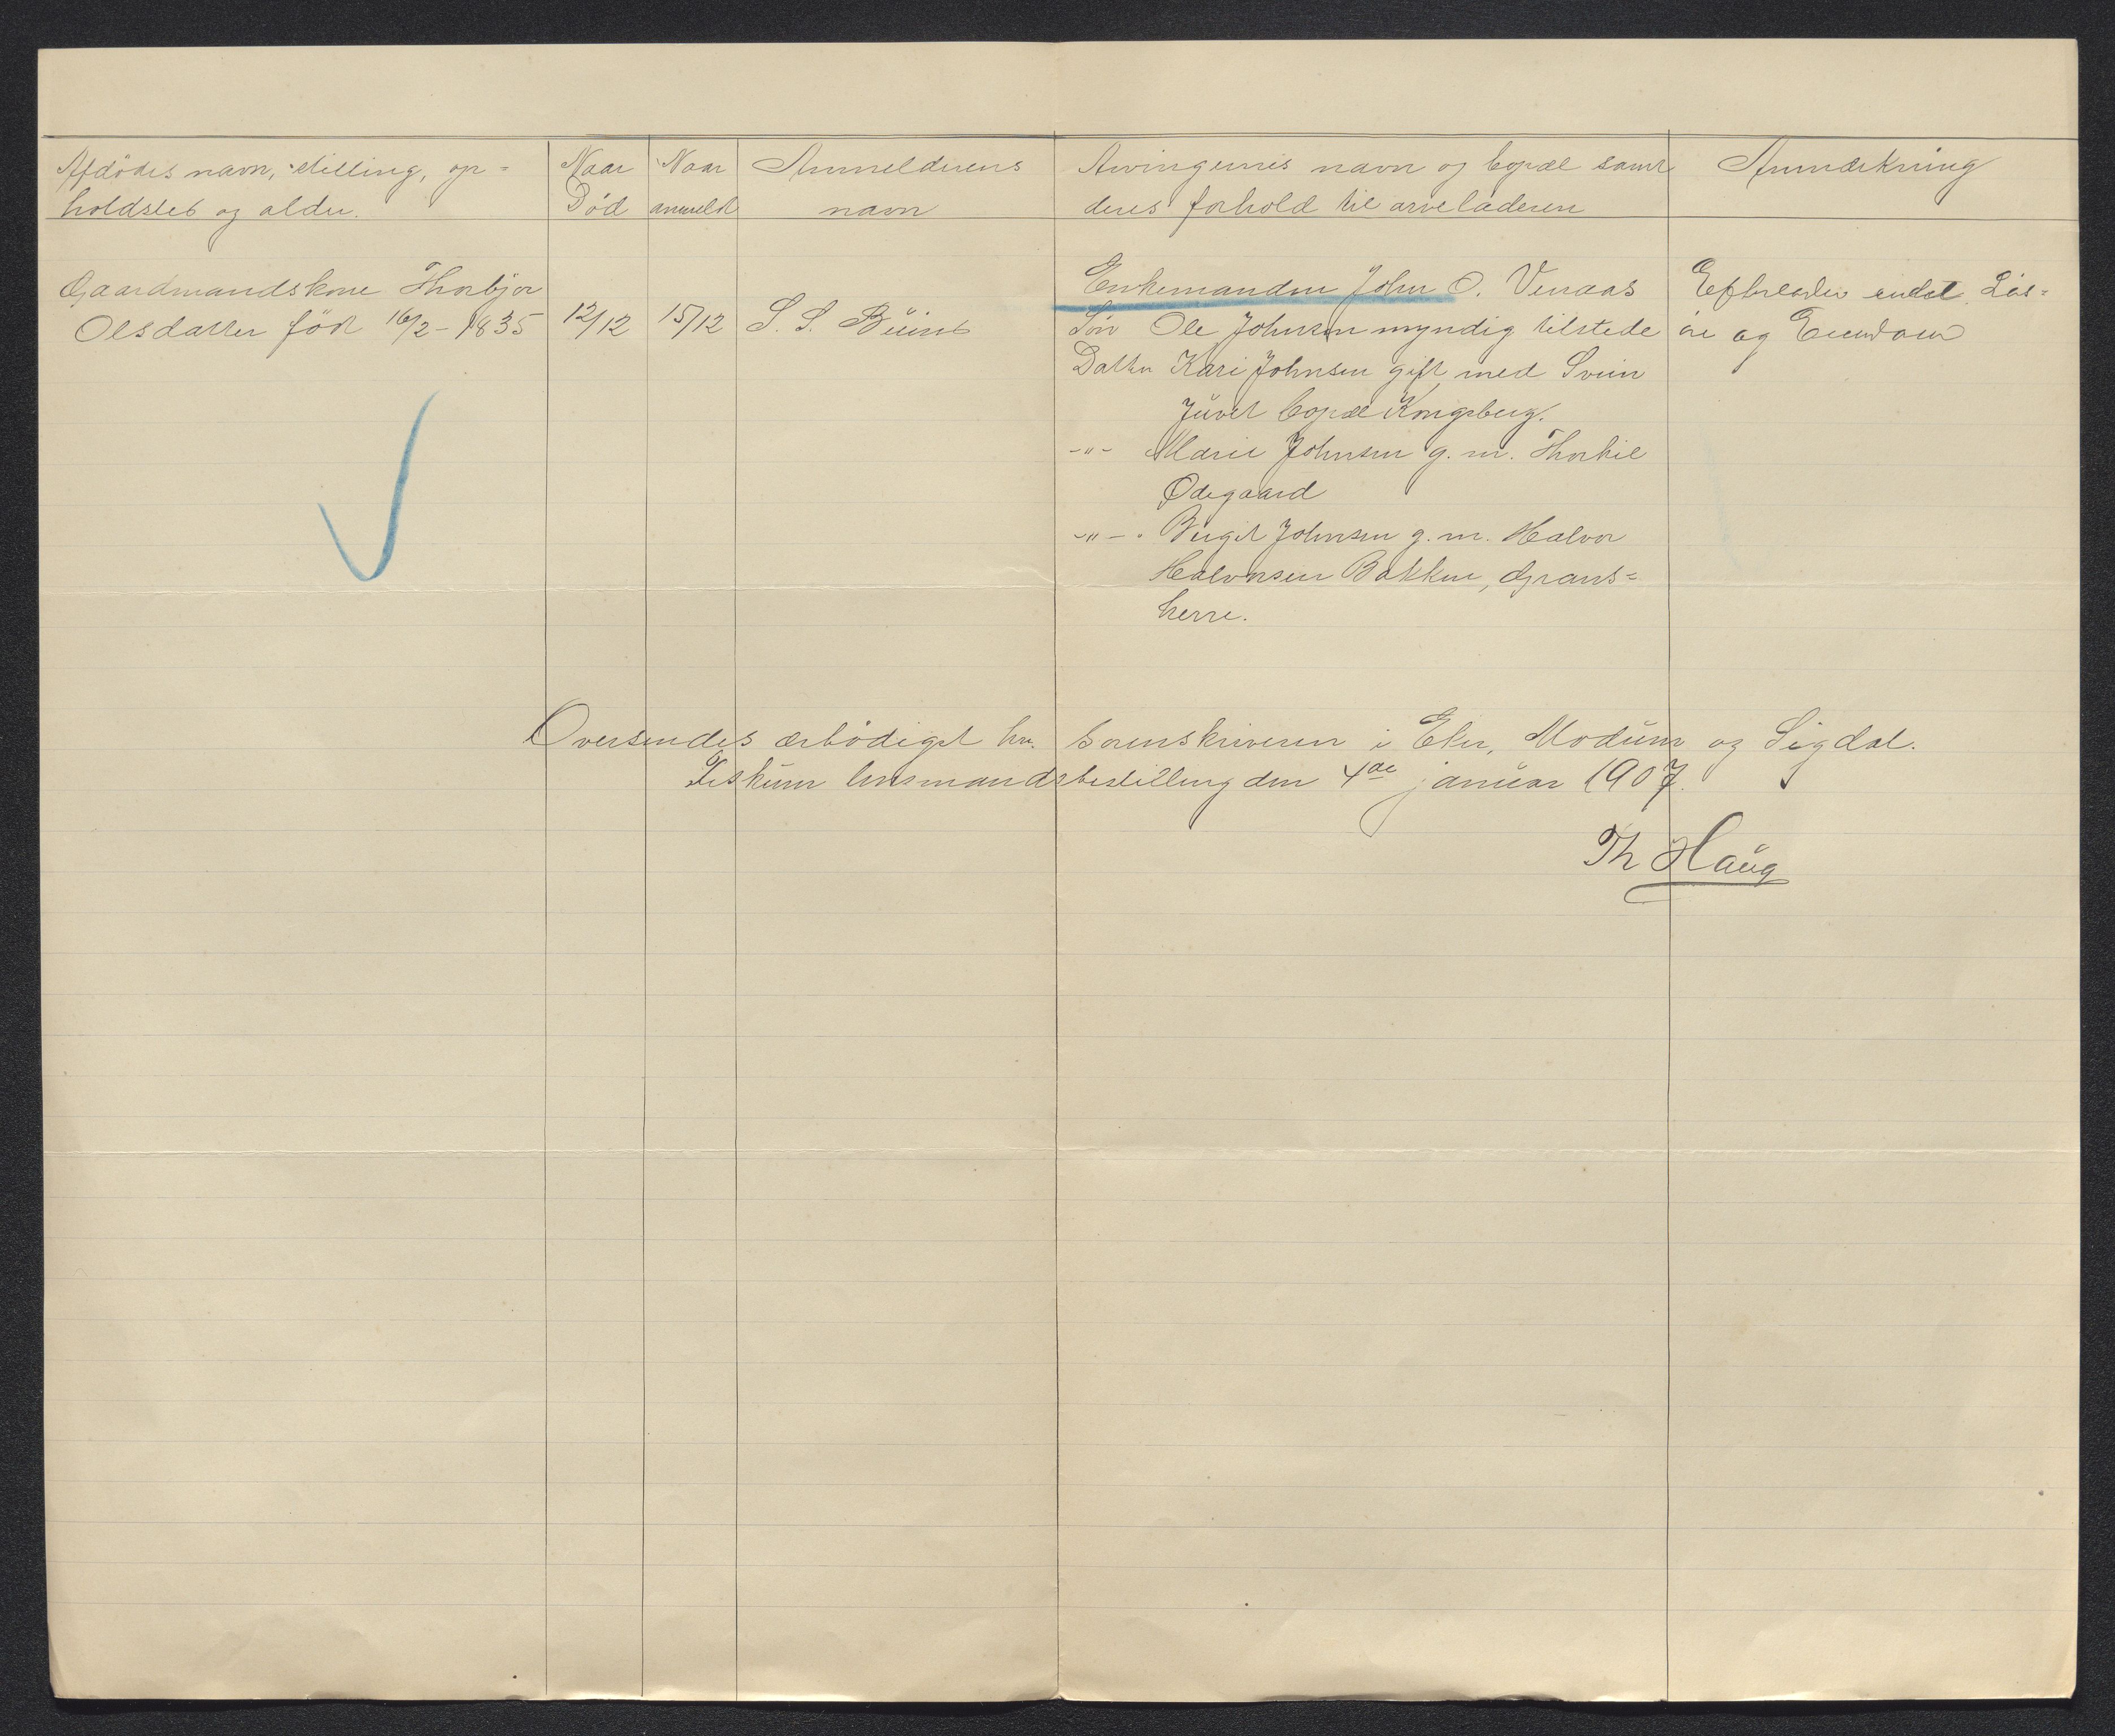 Afdødes navn, stilling, op=
holdsted og alder.
Naar
Død
Naar
anmeldt
Anmelderens
navn
Arvingernes navn og bopæl samt
deres forhold til arveladeren
Anmærkning
Gaardmandskone Thorbjør
Olsdatter født 16/2-1835
12/12
15/12
S. S.
Enkemanden John O. Venaas
Søn Ole Johnsen myndig tilstede
Datter Kari Johnsen gift med Svein
Juvet bopæl Kongsberg.
-"- Marie Johnsen g. m. Thorkil
Ødegaard
-"- Birgit Johnsen g. m. Halvor
Halvorsen Bakken, Grans=
herre.
Efterlader endel Løs=
øre og Eiendom
Oversendes ærbødigst hr. sorenskriveren i Eker, Modum og Sigdal.
Fiskum lensmandsbestilling den 4de januar 1907.
Th Haug